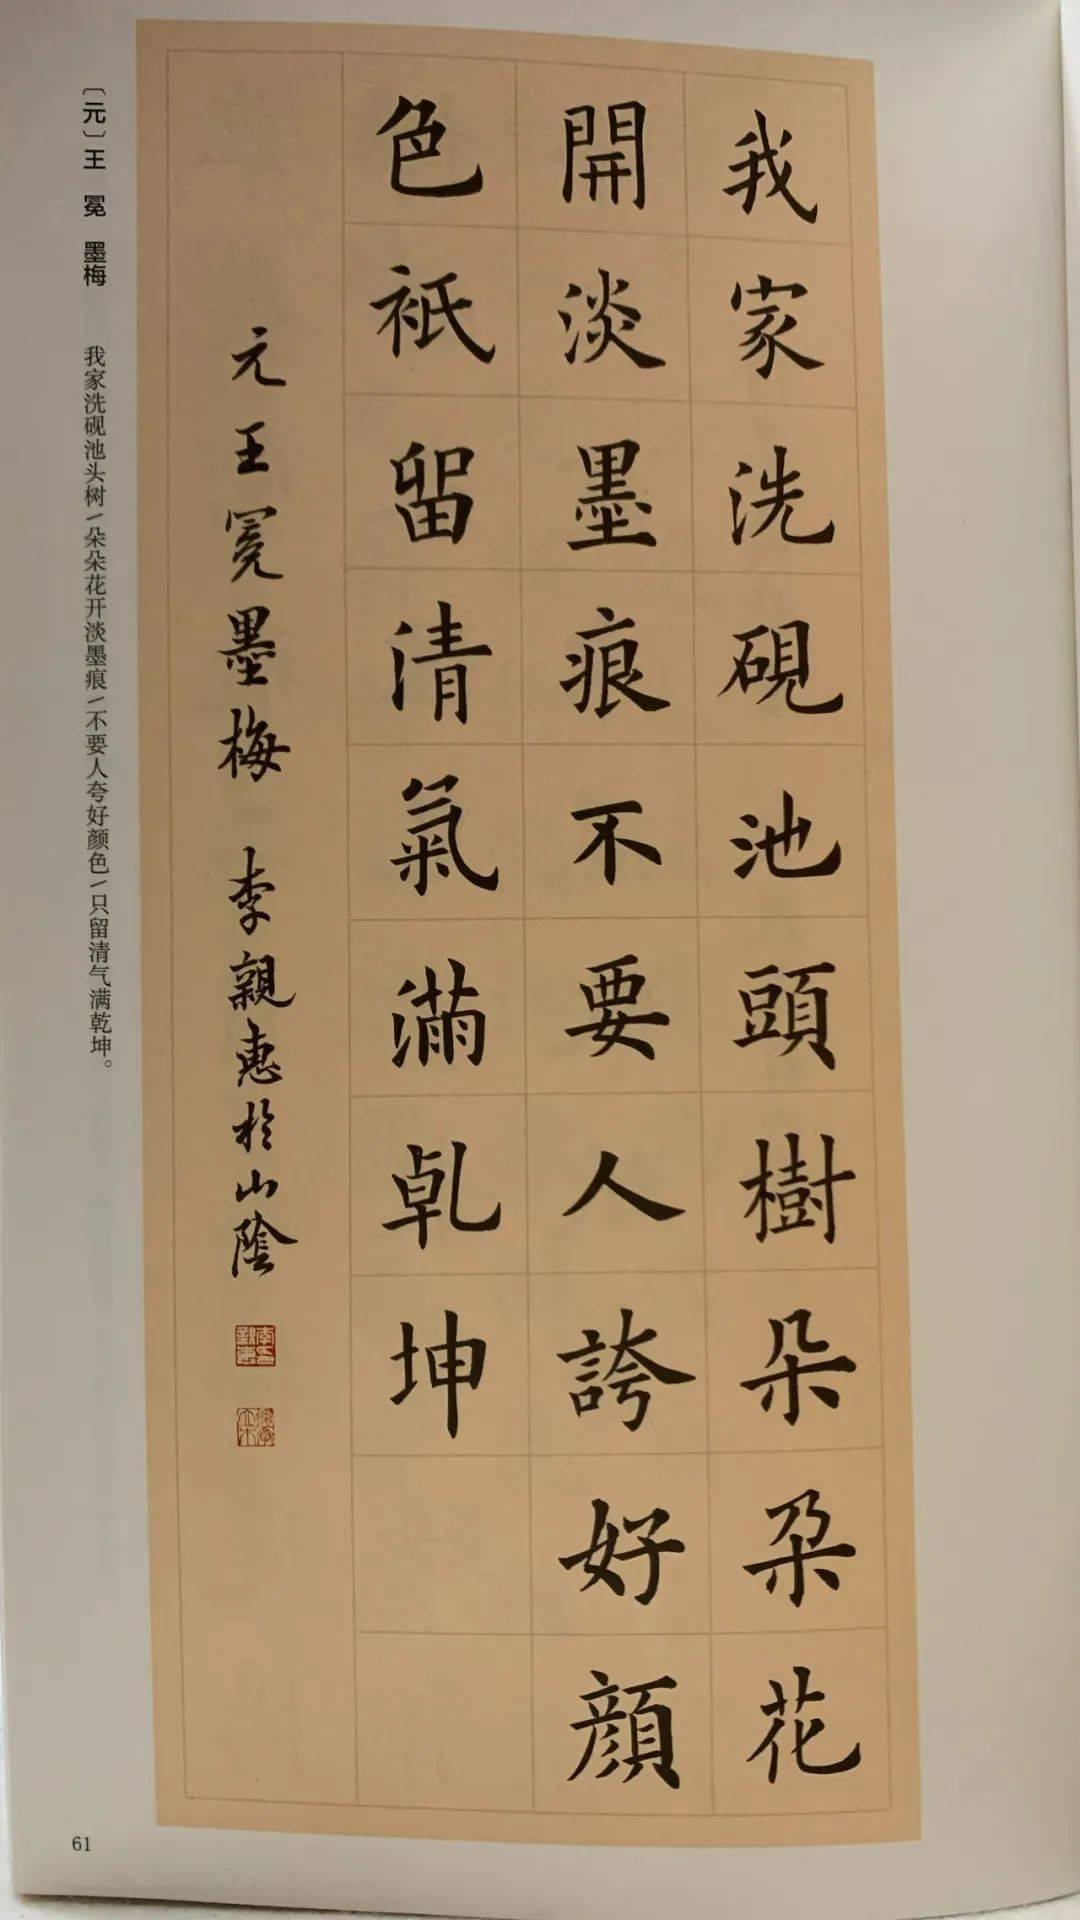 我家洗硯池頭樹朵朵花
開淡墨痕不要人誇好顏
色祇留清氣滿乾坤
元王冕墨梅 李親惠於山陰
〔元〕王 冕 墨梅 我家洗砚池头树/朵朵花开淡墨痕/不要人夸好颜色/只留清气满乾坤。
61